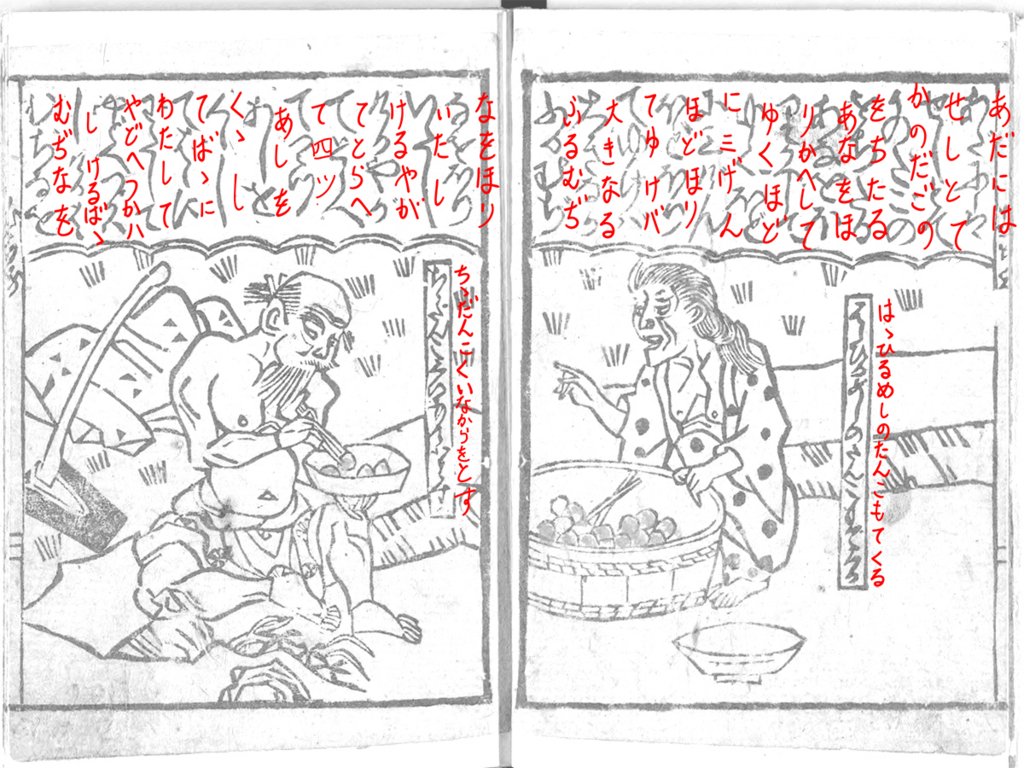 あだには
せしとて
かのだごの
をちたる
あなをほ
りかへして
ゆくほど
に三げん
ほどほり
てゆけバ
大きなる
ふるむぢ
はゝひるめしのたんこもてくる
なをほり
いたし
けるやが
てとらへ
て四ツ
あしを
くゝし
てばゝに
わたして
やどへつかハ
しけるばゝ
むぢなを
ちゝだんこくいなからをとす